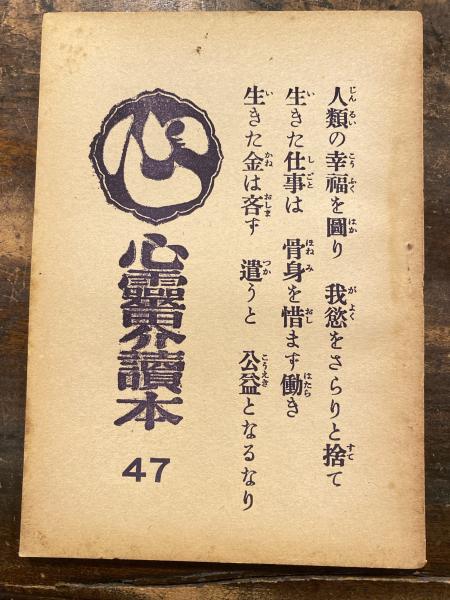 人類の幸福を圖り 我慾をさらりと捨て
生きた仕事は 骨身を惜ます働き
生きた金は吝す 遣うと 公益となるなり
心
心靈界讀本
47